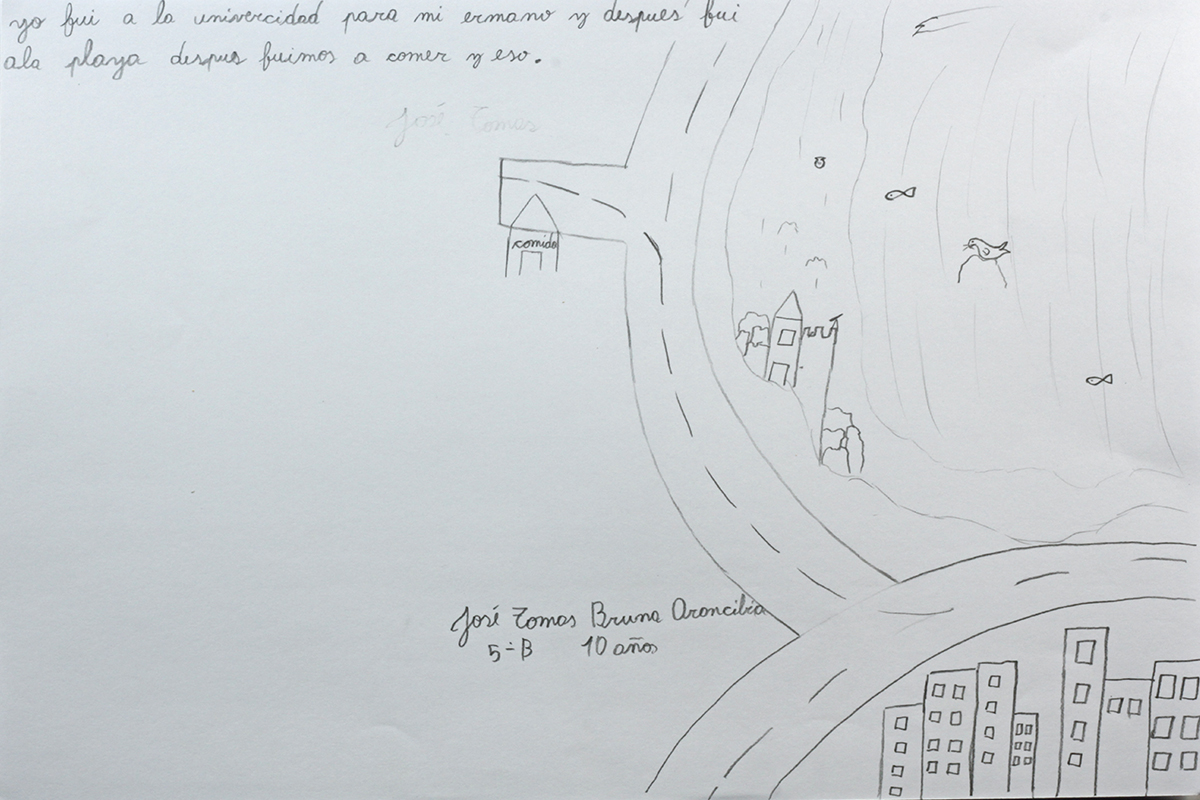 yo fui a la univercidad para mi ermano y despues fui
ala playa despus fuimos a comer y eso.
José Tomas
comida
José Tomas Bruna Aroncibia
5-B 10 años